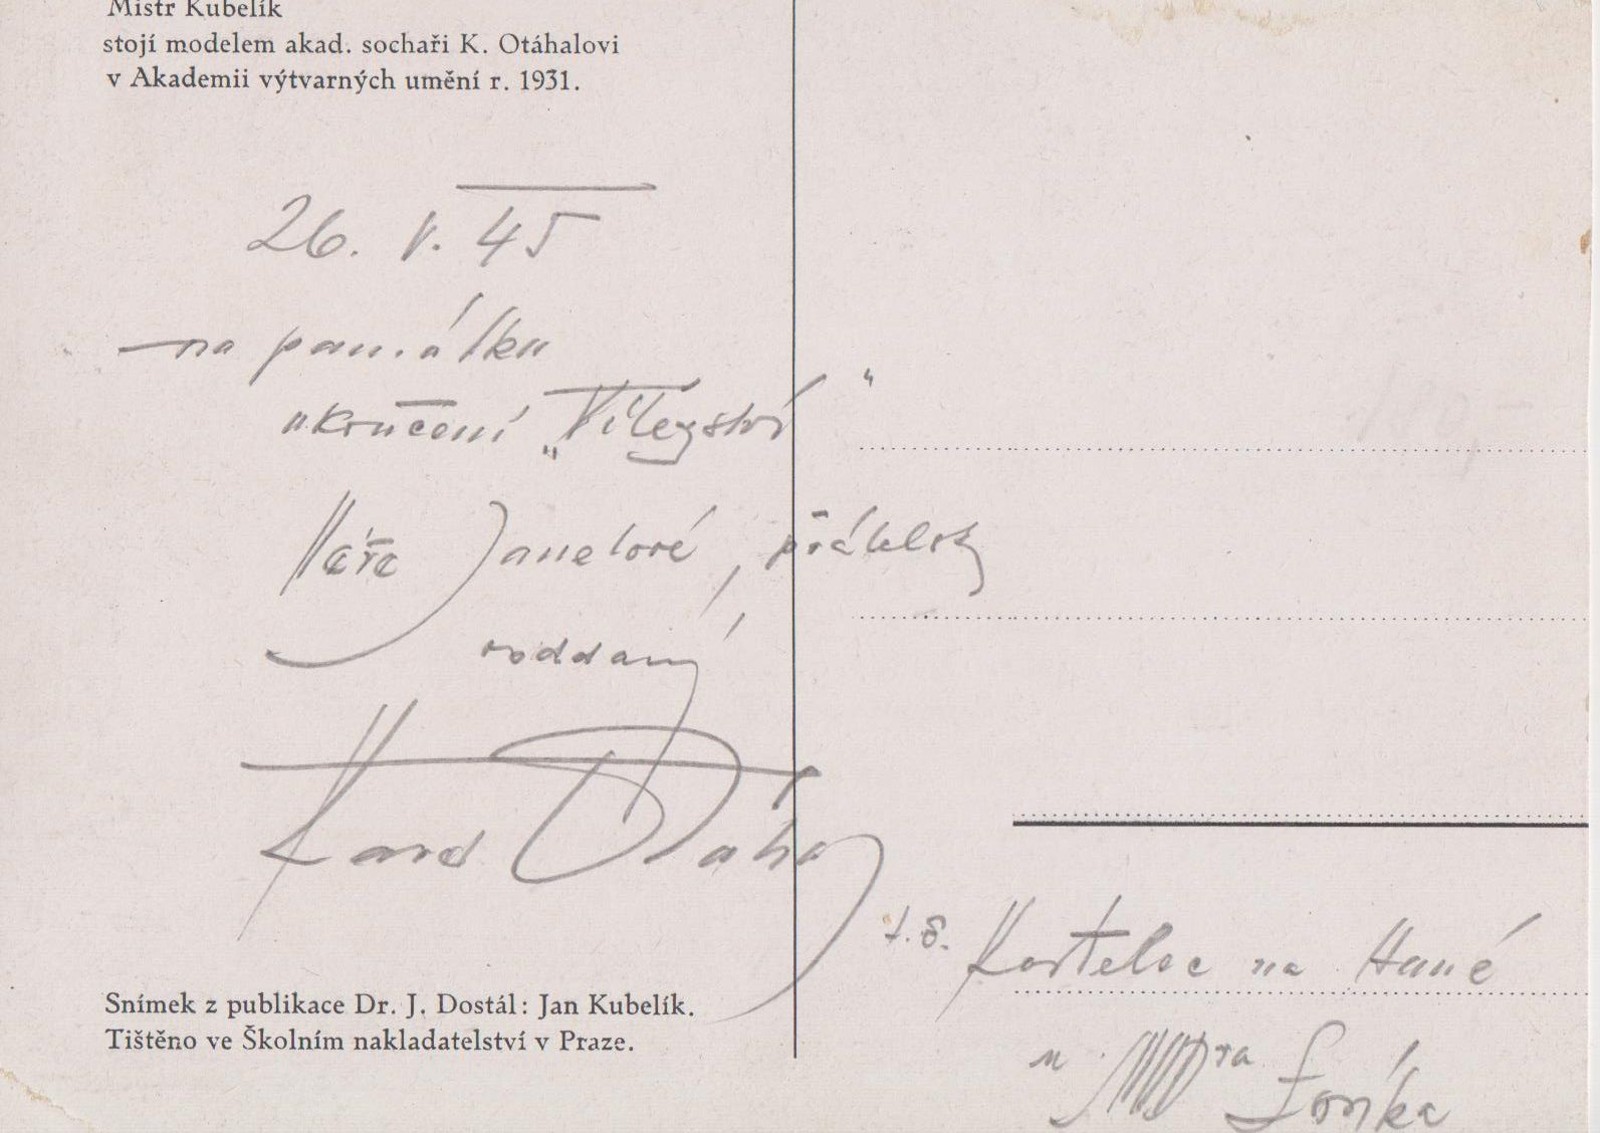 Mistr Kubelík
stojí modelem akad. sochaři K. Otáhalovi
v Akademii výtvarných umění r. 1931.
26. V. 45
na památku
ukončení „Vítězství“
Máře Janelové, přátelsky
oddaný
Karel Otáhal
t. č. Kostelec na Hané
u
Snímek z publikace Dr. J. Dostál: Jan Kubelík.
Tištěno ve Školním nakladatelství v Praze.